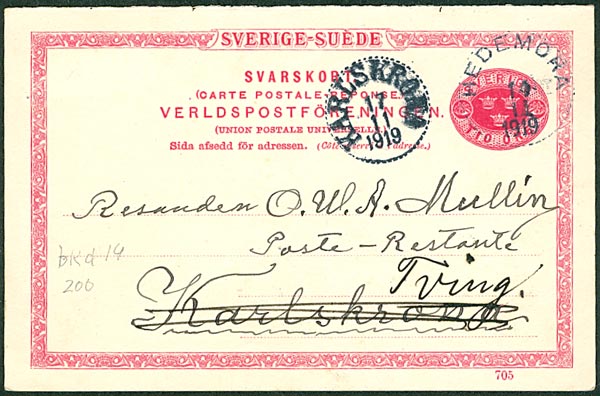 SVERIGE-SUÈDE
SVARSKORT
(CARTE POSTALE-RÉPONSE.)
VERLDSPOSTFÖRENINGEN.
(UNION POSTALE UNIVERSELLE.)
Sida afsedd för adressen. (Côté réservé à l'adresse.)
KARLSKRONA
17
11
1919
HEDEMORA
11
1919
SVERIGE
TIO ÖRE
Resanden O.W.A. Mullin
Poste-Restante
Tving.
Karlskrona
bkd 19
200
705